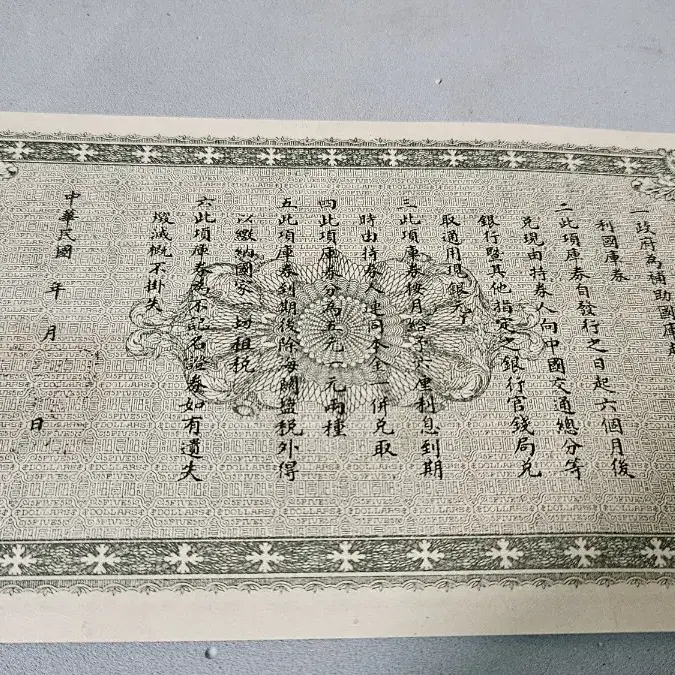 一政府為補助國庫
利國庫券
二此項庫券自發行之日起六個月後
兌現由持券人向中國交通總分等
銀行暨其他指定之銀行官錢局兌
取通用現銀元
三此項庫券按月給息六厘利息到期
時由持券人連同本金一併兌取
四此項庫券分為五元一元兩種
五此項庫券到期後除海關鹽稅外得
以繳納國家一切租稅
六此項庫券為不記名證券如有遺失
燬滅概不掛失
中華民國 年 月 日
FIVE DOLLARS